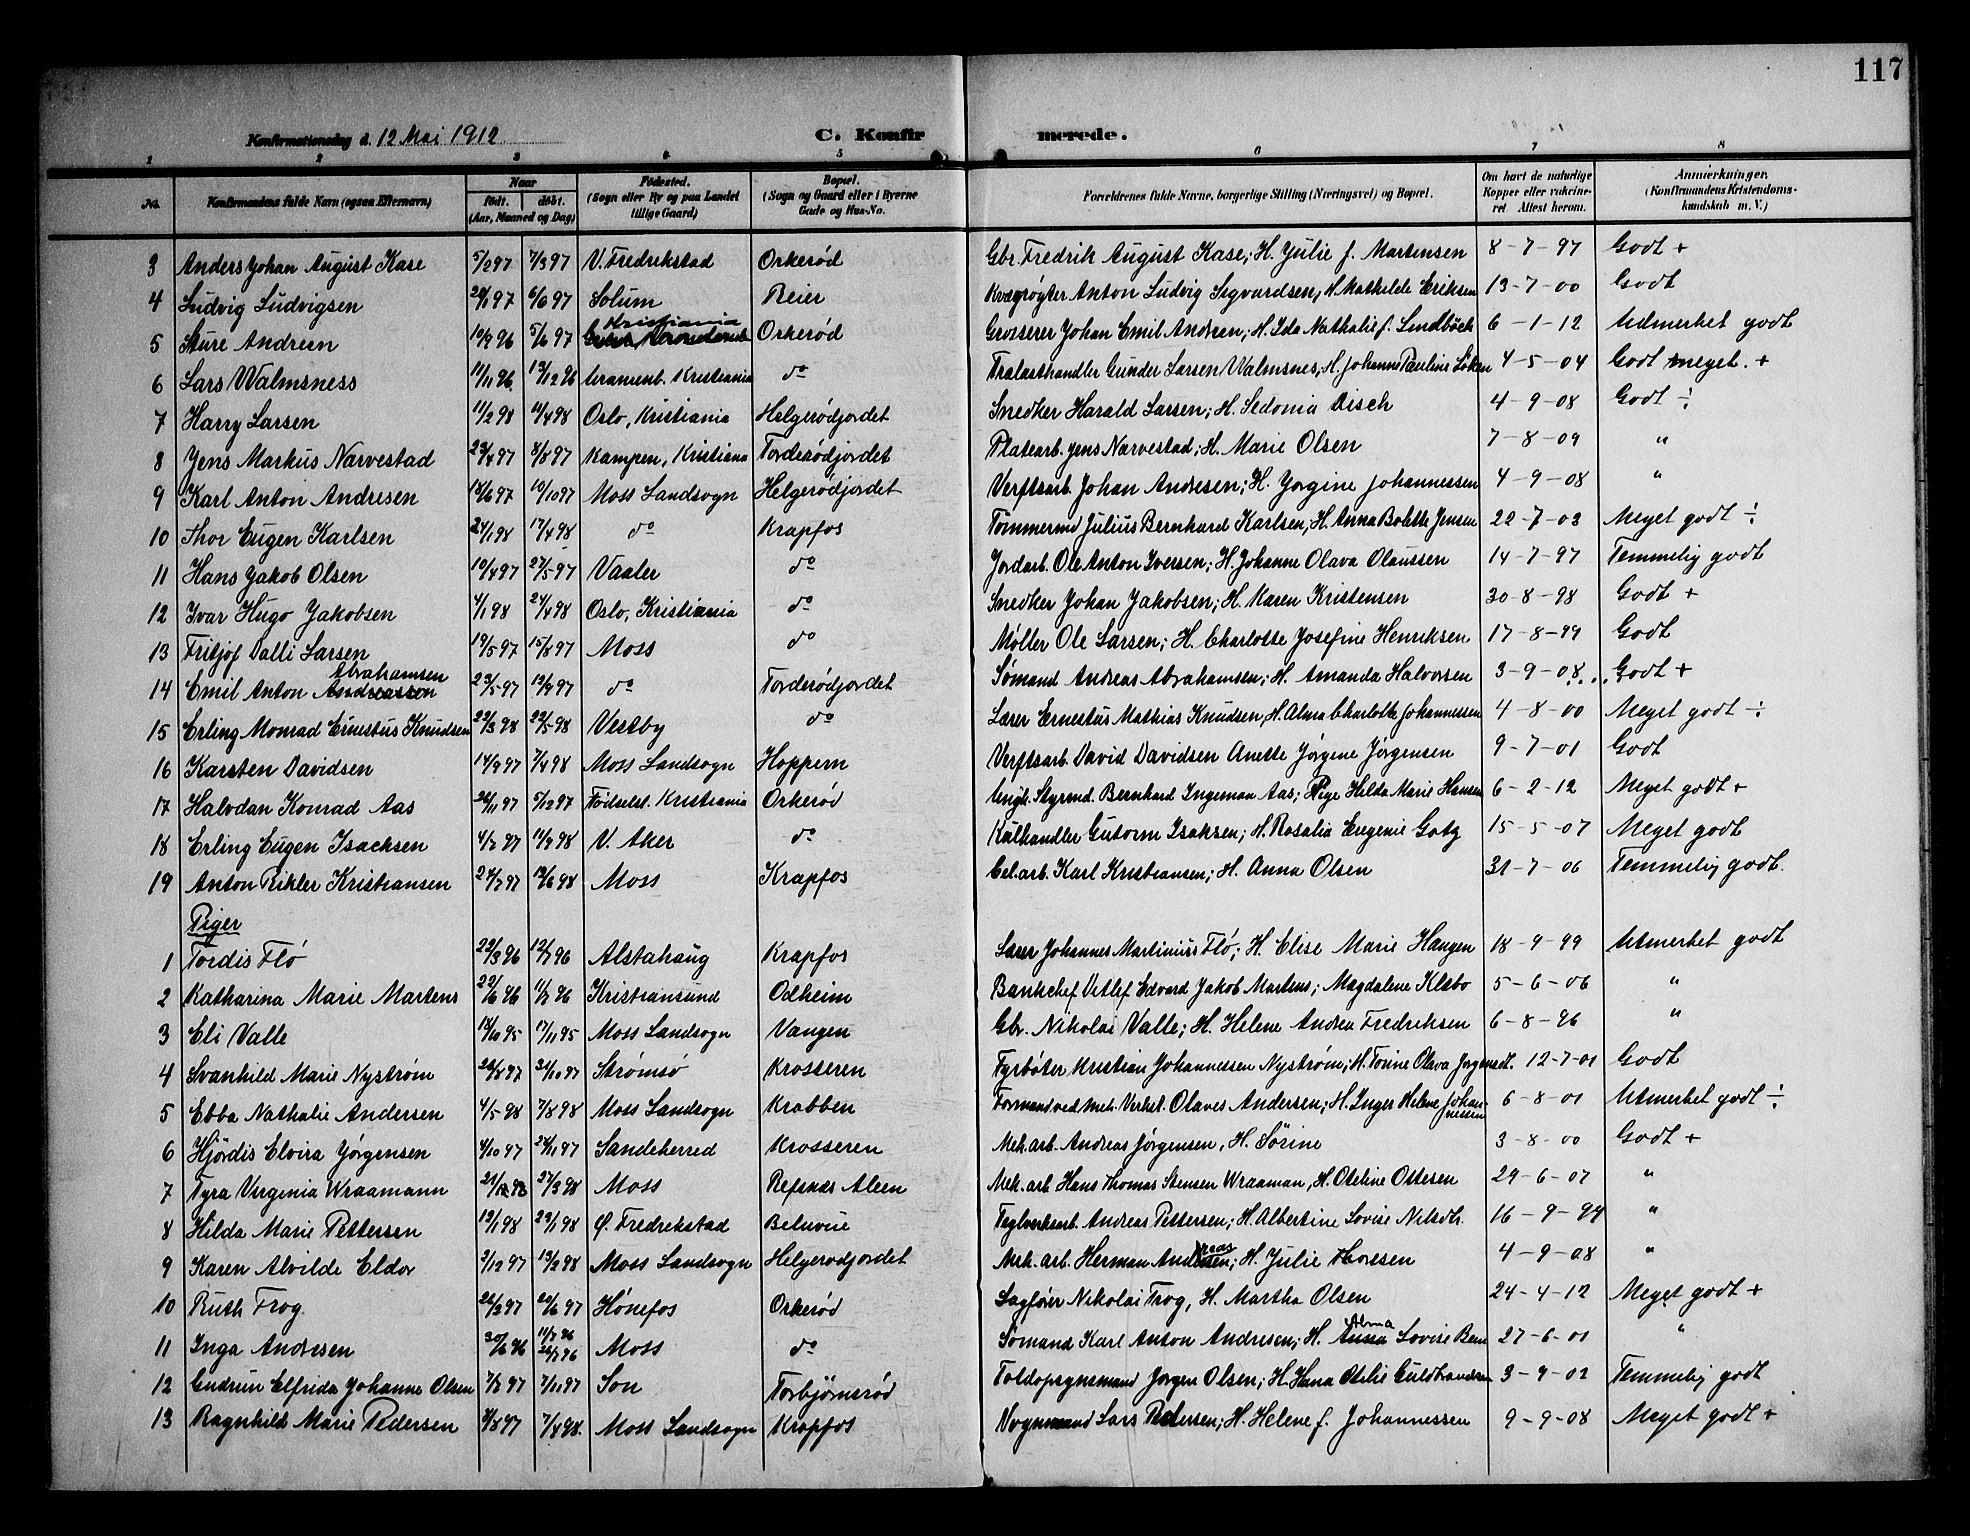 117
Konfirmationsdag d. 12 Mai 1912. C. Konfirmerede.
1 2 3 4 5 6 7 8
No. Konfirmandens fulde Navn (ogsaa Efternavn) Naar født. døbt. (Aar, Maaned og Dag) Fødested. (Sogn eller By og paa Landet tillige Gaard) Bopæl. (Sogn og Gaard eller i Byerne Gade og Hus-No. Forældrenes fulde Navne, borgerlige Stilling (Næringsvei) og Bopæl. Om havt de naturlige Kopper eller vakcineret Attest herom. Anmærkninger. (Konfirmandens Kristendomskundskab m. V.)
3 Anders Johan August Kase 5/2 97 7/3 97 V. Fredrikstad Orkerød Gbr. Fredrik August Kase; H. Julie f. Martinsen 8-7-97 Godt +
4 Ludvig Ludvigsen 97 6/6 97 Solum Reier Kvægrøgter Anton Ludvig Sigvardsen, H. Mathilde Eriksen 13-7-00 Godt
5 Sture Andreen 10/9 96 5/6 97 Kristiania Orkerød Grosserer Johan Emil Andreen; H. Ida Nathalie f. Lindbäck 6-1-12 Utmerket godt
6 Lars Walmsness 11/11 96 13/12 96 Uranienb. Kristiania do Tralasthandler Gunder Larsen Walmsnes, H. Johanne Pauline Løken 4-5-04 Godt meget. +
7 Harry Larsen 11/2 98 11/4 98 Oslo, Kristiania Helgerødjordet Snedker Harald Larsen; H. Sedonia Disch 4-9-08 Godt ÷
8 Jens Markus Narvestad 23/4 97 8/8 97 Kampen, Kristiania Torderødjordet Platearb. Jens Narvestad; H. Marie Olsen 7-8-09 "
9 Karl Anton Andresen 18/6 97 10/10 97 Moss Landsogn Helgerødjordet Verftsarb. Johan Andresen; H. Jørgine Johannessen 4-9-08 "
10 Thor Eugen Karlsen 24/1 98 17/4 98 do Krapfos Tømmermd Julius Bernhard Karlsen, H. Anna Bolette Jensen 22-7-03 Meget godt ÷
11 Hans Jakob Olsen 10/4 97 27/5 97 Vaaler do Jordarb. Ole Anton Iversen; H. Johanne Olava Olaussen 14-7-97 Temmelig godt
12 Ivar Hugo Jakobsen 4/1 98 24/4 98 Oslo, Kristiania do Snedker Johan Jakobsen; H. Karen Kristensen 30-8-98 Godt +
13 Fritjof Dalli Larsen 19/5 97 15/8 97 Moss do Møller Ole Larsen; H. Charlotte Josefine Henriksen 17-8-99 Godt
14 Emil Anton Andreassen Abrahamsen 23/5 97 19/9 97 do Torderødjordet Sømand Andreas Abrahamsen; H. Amanda Halvorsen 3-9-08 Godt +
15 Erling Monrad Ernestus Knudsen 23/3 98 29/5 98 Vestby do Lærer Ernestus Mathias Knudsen, H. Alma Charlotte Johannessen 4-8-00 Meget godt ÷
16 Karsten Davidsen 14/9 97 7/4 98 Moss Landsogn Hoppern Verftsarb. David Davidsen Anette Jørgine Jørgensen 9-7-01 Godt
17 Halvdan Konrad Aas 26/11 97 5/12 97 Fødselst. Kristiania Orkerød Ungk. Styrmd. Bernhard Ingeman Aas; Pige Hilda Marie Hansen 6-2-12 Meget godt +
18 Erling Eugen Isachsen 4/7 97 98 V. Aker do Kulhandler Gutorm Isaksen; H. Rosalia Eugenie Gotz 15-5-07 Meget godt
19 Anton Rikler Kristiansen 97 98 Moss Krapfos Cel. arb. Karl Kristiansen; H. Anna Olsen 31-7-06 Temmelig godt.
Piger
1 Tordis Flö 22/3 96 12/7 96 Alstahaug Krapfos Lærer Johannes Martinius Flö; H. Elise Marie Haugen 18-9-99 Utmerket godt
2 Katharina Marie Martens 22/6 96 96 Kristiansund Odheim Bankchef Ditlef Edvard Jakob Martens; Magdalene Klebo 5-6-06 "
3 Eli Valle 18/10 95 17/11 95 Moss Landsogn Vangen Gbr. Nikolai Valle; H. Helene Andrea Fredriksen 6-8-96 "
4 Svanhild Marie Nystrøm 26/8 97 31/10 97 Strømsø Krosseren Fyrbøter Kristian Johannessen Nystrøm; H. Torine Olava Jørgensdt. 12-7-01 Godt
5 Ebba Nathalie Andersen 4/5 98 7/8 98 Moss Landsogn Krabben Formand ved mek. Verkst. Olaves Andersen; H. Inger Helene Johannessen 6-8-01 Utmerket godt ÷
6 Hjördis Elvira Jørgensen 4/10 97 97 Sandeherred Krosseren Mek. arb. Andreas Jørgensen, H. Sørine 3-8-00 Godt +
7 Tyra Virginia Wraamann 27/3 98 Moss Refsnæs Aleen Mek. arb. Hans Thomas Stensen Wraaman, H. Oteline Ottesen 29-6-07 "
8 Hilda Marie Pettersen 98 98 Ø. Fredrekstad Beluvue Teglverksarb. Andreas Pettersen; H. Albertine Lovise Nilsdtr. 16-9-99 "
9 Karen Alvilde Eldor 2/12 97 13/2 98 Moss Landsogn Helgerødjordet Mek. arb. Herman Andreassen; H. Julie Thoresen 4-9-08 "
10 Ruth Frog 97 97 Hønefos Orkerød Sagfører Nikolai Frog, H. Martha Olsen 24-4-12 Meget godt +
11 Inga Andresen 30/6 96 11/7 96 96 Moss do Sømand Karl Anton Andresen; H. Anna Alma Lovise 27-6-01 "
12 Gudrun Elfrida Johanne Olsen 7/7 97 7/11 97 Son Torbjørnsrød Toldopsynsmand Jørgen Olsen; H. Hana Otelie Guldbrandsen 3-9-02 Temmelig godt
13 Ragnhild Marie Pedersen 97 7/4 98. Moss Landsogn Krapfos Vognmand Lars Pedersen; H. Helene f. Johannessen 9-9-08 Meget godt +